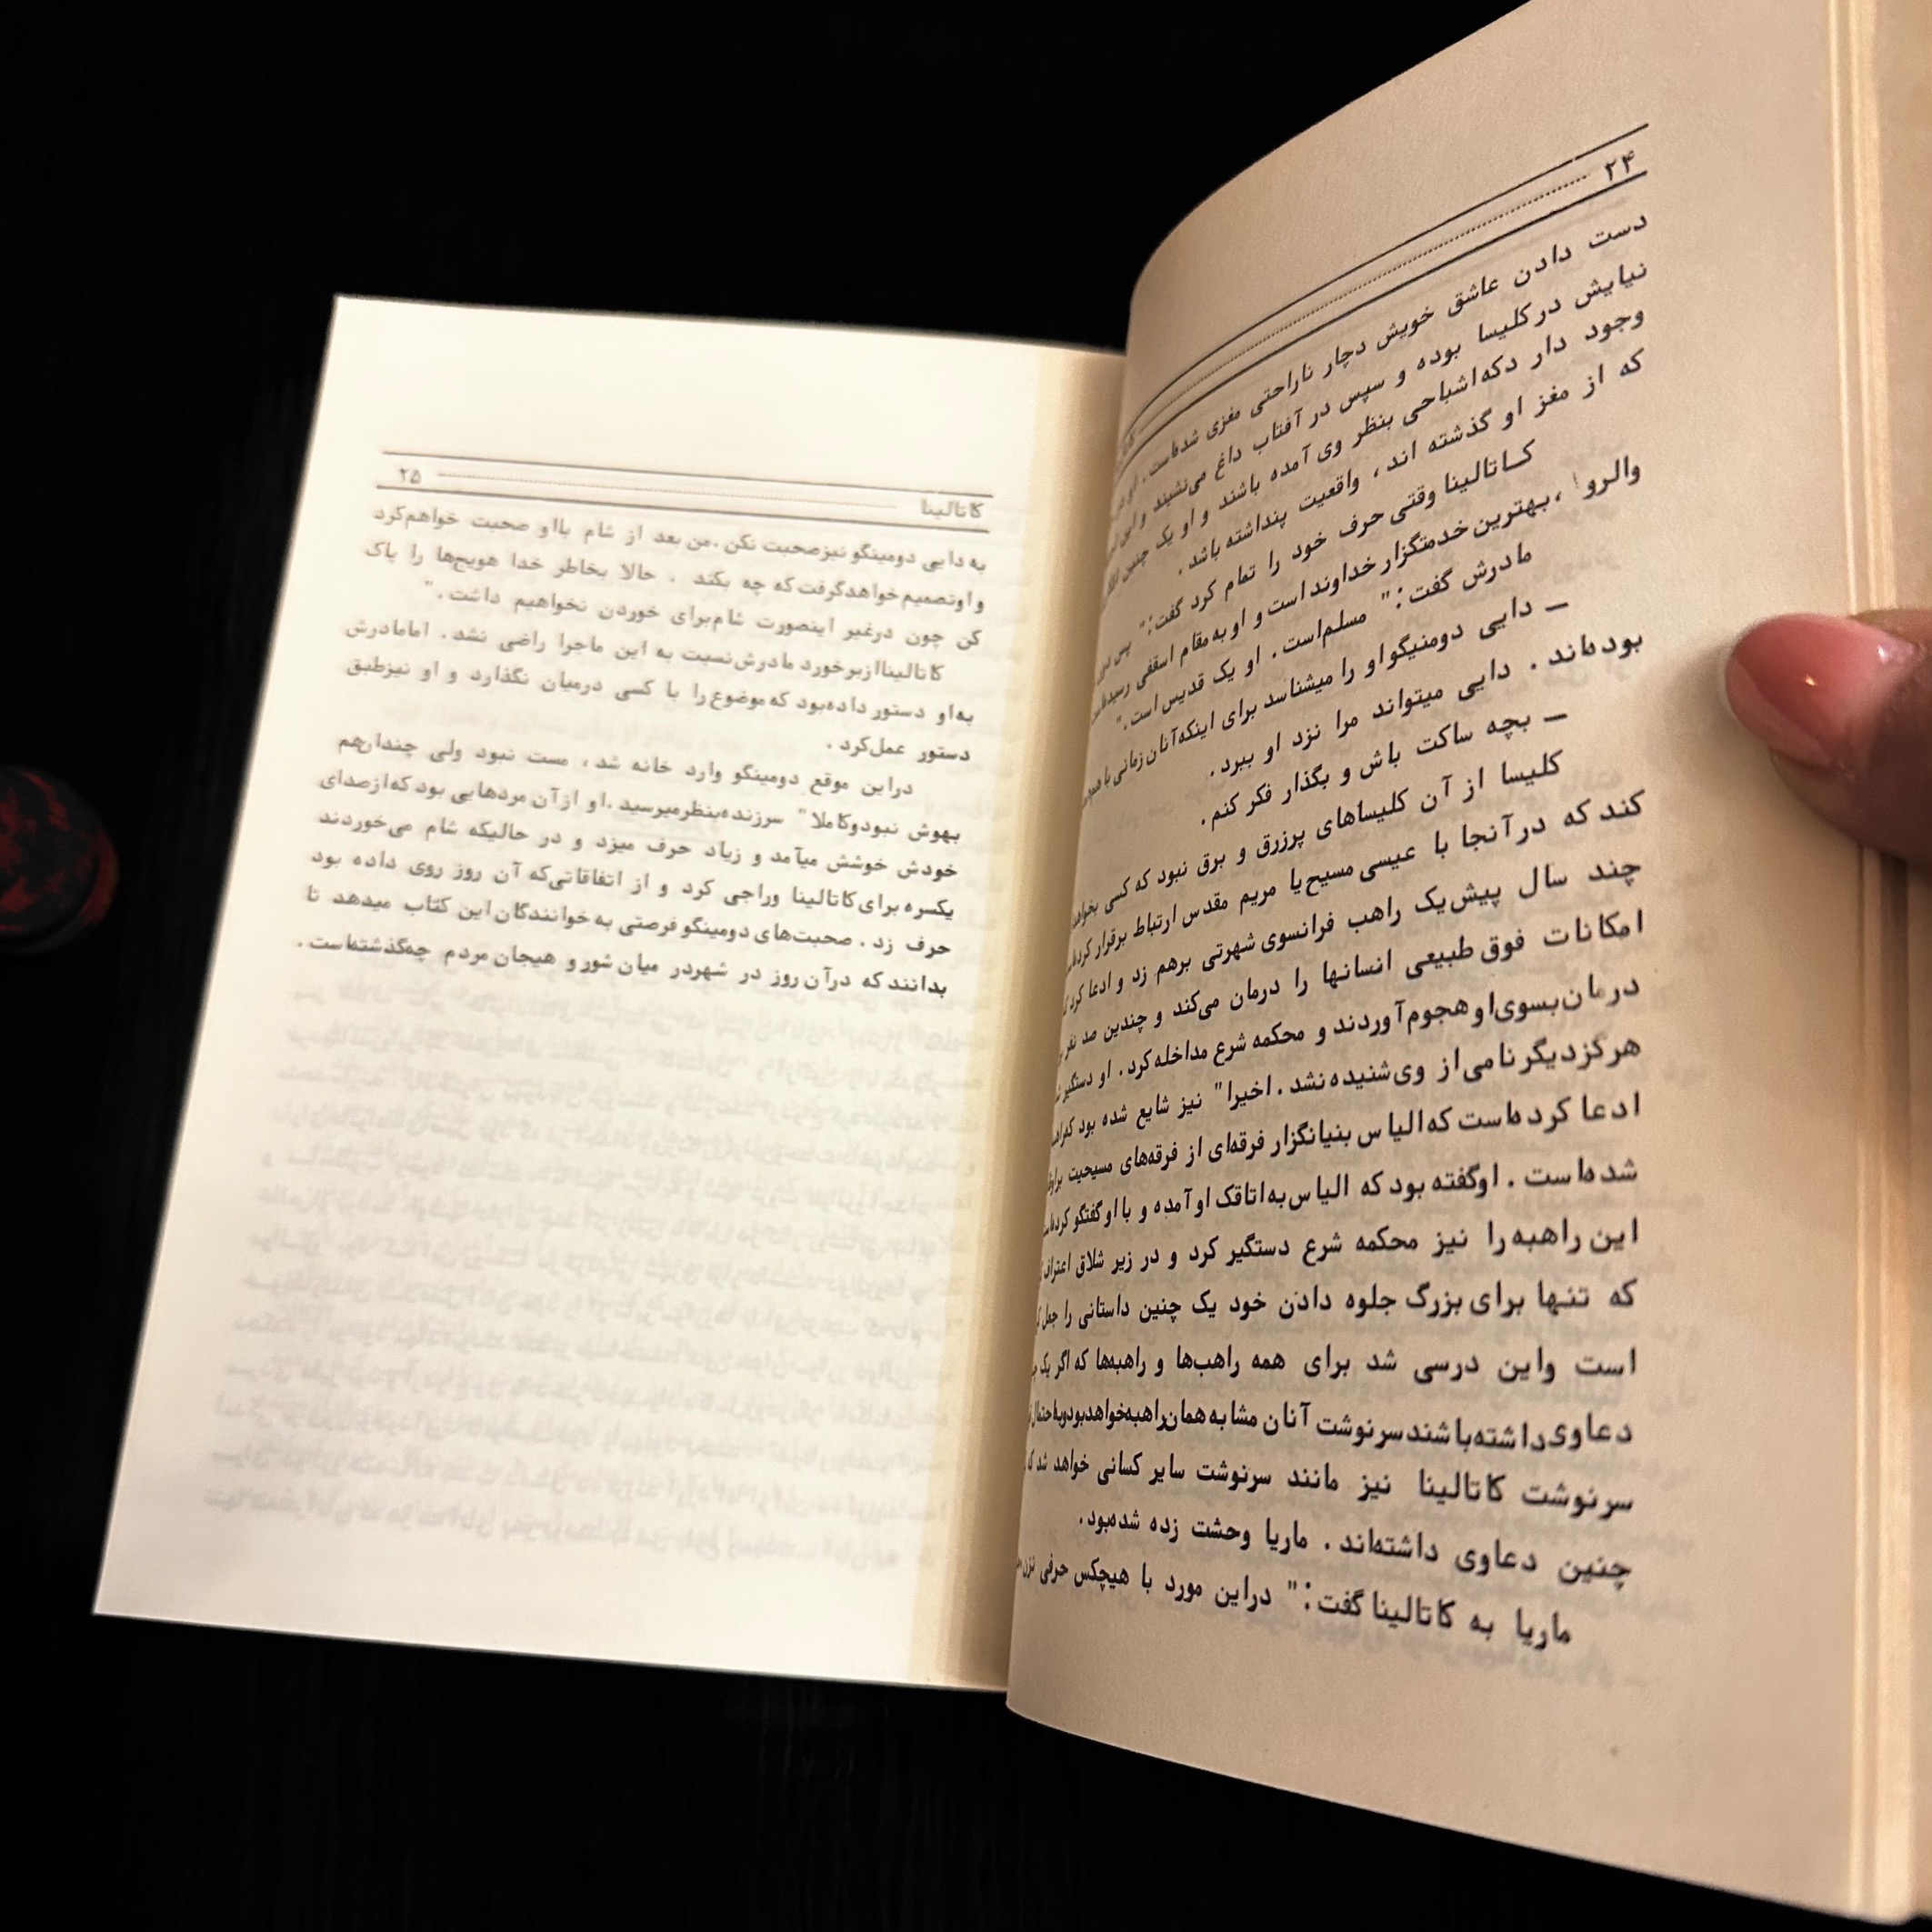 ۲۴
دست دادن عاشق خویش دچار ناراحتی مغزی شده‌است. او در
نیایش در کلیسا بوده و سپس در آفتاب داغ می‌نشیند و این
وجود دار دکه اشباحی بنظر وی آمده باشند و او یک چنین
که از مغز او گذشته اند، واقعیت پنداشته باشد.
کـاتالینا وقتی حرف خود را تمام کرد گفت:" پس دن
والرو، بهترین خدمتگزار خداوند است و او به مقام اسقفی رسیده‌است
مادرش گفت:" مسلم‌است. او یک قدیس است."
– دایی دومنیگو او را میشناسد برای اینکه آنان زمانی با هم
بوده‌اند. دایی میتواند مرا نزد او ببرد.
– بچه ساکت باش و بگذار فکر کنم.
کلیسا از آن کلیساهای پرزرق و برق نبود که کسی بخواهد
کند که در آنجا با عیسی مسیح یا مریم مقدس ارتباط برقرار کرده
چند سال پیش یک راهب فرانسوی شهرتی برهم زد و ادعا کرد که
امکانات فوق طبیعی انسانها را درمان می‌کند و چندین صد نفر
درمان بسوی او هجوم آوردند و محکمه شرع مداخله کرد. او دستگیر
هرگز دیگر نامی از وی شنیده نشد. اخیرا" نیز شایع شده بود که
ادعا کرده‌است که الیاس بنیانگزار فرقه‌ای از فرقه‌های مسیحیت براو
شده‌است. اوگفته بود که الیاس به اتاقک او آمده و با او گفتگو کرده‌است
این راهبه را نیز محکمه شرع دستگیر کرد و در زیر شلاق اعتراف
که تنها برای بزرگ جلوه دادن خود یک چنین داستانی را جعل
است و این درسی شد برای همه راهب‌ها و راهبه‌ها که اگر یک
دعاوی داشته‌باشند سرنوشت آنان مشابه همان راهبه خواهد بود و به احتمال
سرنوشت کاتالینا نیز مانند سرنوشت سایر کسانی خواهد شد که
چنین دعاوی داشته‌اند. ماریا وحشت زده شده‌بود.
ماریا به کاتالینا گفت:" در این مورد با هیچکس حرفی نزن
کاتالینا ۲۵
به دایی دومینگو نیز صحبت نکن. من بعد از شام با او صحبت خواهم‌کرد
و او تصمیم خواهد گرفت که چه بکند. حالا بخاطر خدا هویج‌ها را پاک
کن چون در غیر اینصورت شام برای خوردن نخواهیم داشت."
کاتالینا از برخورد مادرش نسبت به این ماجرا راضی نشد. اما مادرش
به او دستور داده بود که موضوع را با کسی درمیان نگذارد و او نیز طبق
دستور عمل کرد.
در این موقع دومینگو وارد خانه شد، مست نبود ولی چندان هم
بهوش نبود و کاملا" سرزنده بنظر میرسید. او از آن مردهایی بود که از صدای
خودش خوشش میآمد و زیاد حرف میزد و در حالیکه شام می‌خوردند
یکسره برای کاتالینا وراجی کرد و از اتفاقاتی که آن روز روی داده بود
حرف زد. صحبت‌های دومینگو فرصتی به خوانندگان این کتاب میدهد تا
بدانند که در آن روز در شهر در میان شور و هیجان مردم چه گذشته‌است.